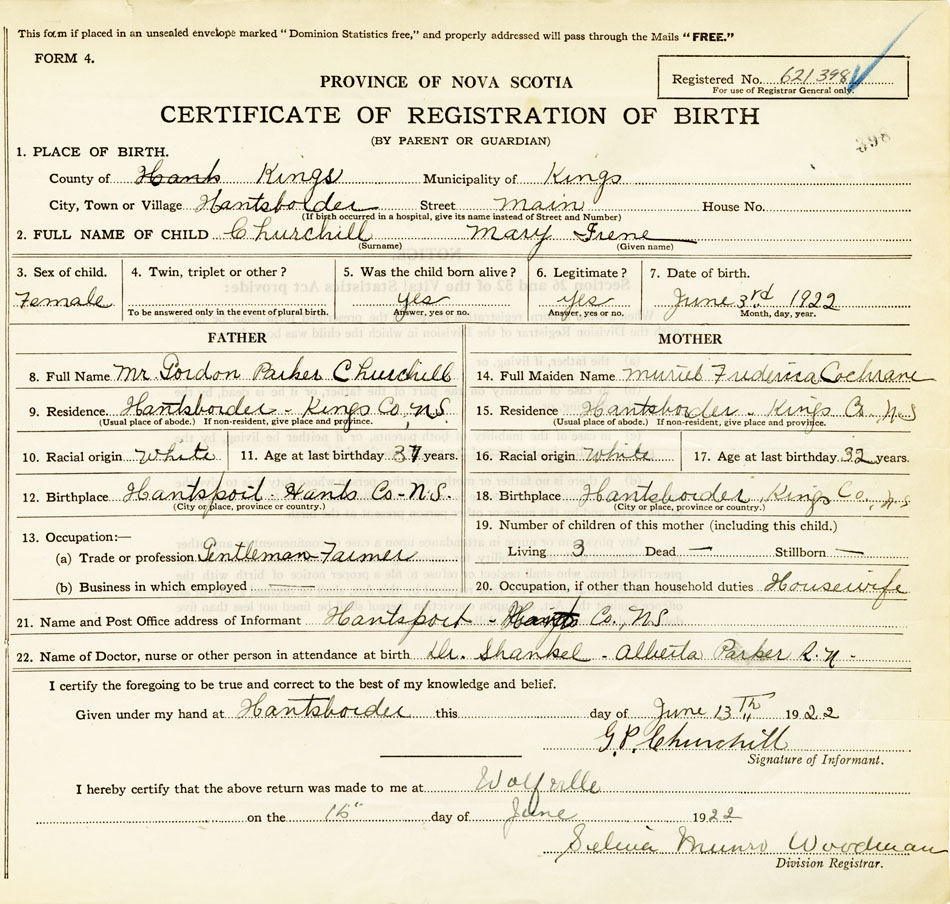 This form if placed in an unsealed envelope marked "Dominion Statistics free," and properly addressed will pass through the Mails "FREE."
FORM 4.
Registered No. 621398
For use of Registrar General only.
PROVINCE OF NOVA SCOTIA
CERTIFICATE OF REGISTRATION OF BIRTH
(BY PARENT OR GUARDIAN)
398
1. PLACE OF BIRTH.
County of Hants Kings Municipality of Kings
City, Town or Village Hantsborder Street Main House No.
(If birth occurred in a hospital, give its name instead of Street and Number)
2. FULL NAME OF CHILD Churchill Mary Irene
(Surname) (Given name)
3. Sex of child. 4. Twin, triplet or other? 5. Was the child born alive? 6. Legitimate? 7. Date of birth.
Female yes yes June 3rd 1922
To be answered only in the event of plural birth. Answer, yes or no. Answer, yes or no. Month, day, year.
FATHER
8. Full Name Mr. Gordon Parker Churchill
9. Residence. Hantsborder - Kings Co, N.S.
(Usual place of abode.) If non-resident, give place and province.
10. Racial origin White 11. Age at last birthday 37 years.
12. Birthplace Hantsport - Hants Co - N.S.
(City or place, province or country.)
13. Occupation:—
(a) Trade or profession Gentleman-Farmer
(b) Business in which employed
MOTHER
14. Full Maiden Name Muriel Frederica Cochrane
15. Residence Hantsborder - Kings Co. N.S
(Usual place of abode.) If non-resident, give place and province.
16. Racial origin White 17. Age at last birthday 32 years.
18. Birthplace Hantsborder Kings Co., N.S
(City or place, province or country.)
19. Number of children of this mother (including this child.)
Living 3 Dead — Stillborn —
20. Occupation, if other than household duties Housewife
21. Name and Post Office address of Informant Hantsport - Hants Co., N.S
22. Name of Doctor, nurse or other person in attendance at birth Dr. Shankel - Alberta Parker R.N -
I certify the foregoing to be true and correct to the best of my knowledge and belief.
Given under my hand at Hantsborder this day of June 13Th 1922
G.P. Churchill
Signature of Informant.
I hereby certify that the above return was made to me at Wolfville
on the 16" day of June 1922
Selina Munro Woodman
Division Registrar.